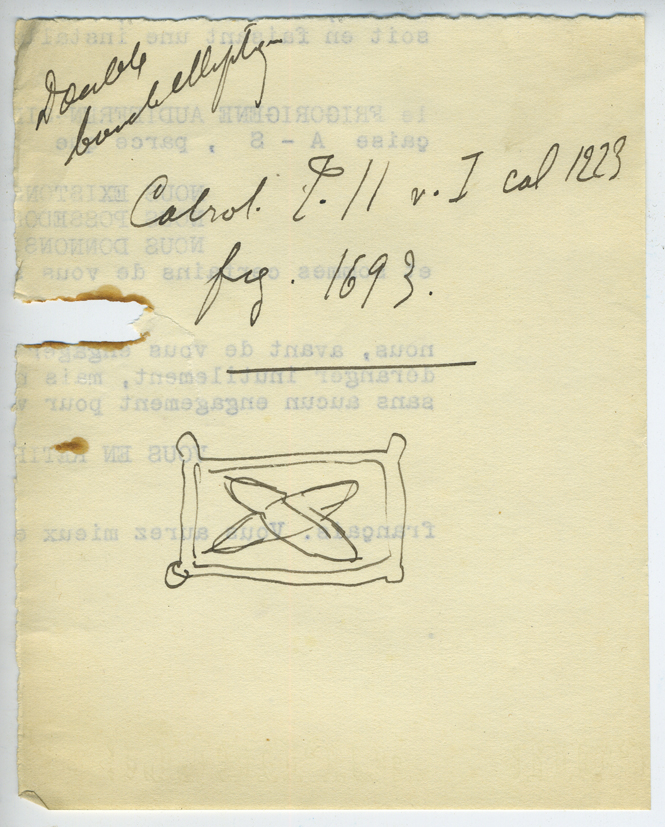 Double
boucle elliptiq
Cabrol. T. II v. I col 1223
fig. 1693.
soit en faisant une instal
le FRIGORIGENE AUDIFFREN
çaise A - S , parce que
NOUS EXISTONS
NOUS POSSEDO
NOUS DONNONS
et sommes certains de vous
nous, avant de vous engager
déranger inutilement, mais
sans aucun engagement pour v
VOUS EN
français. Vous aurez mieux e